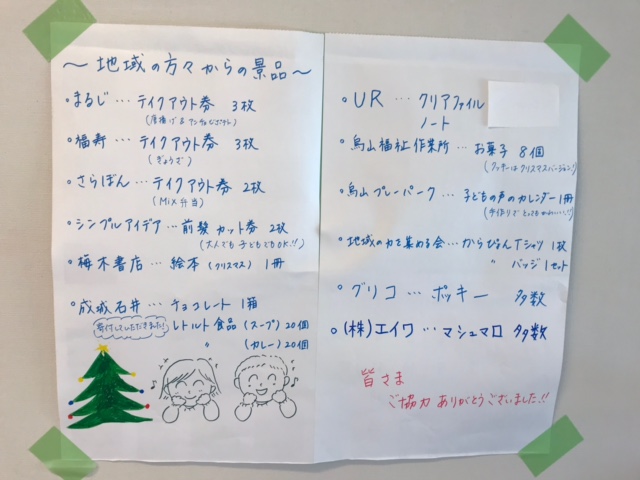 ～地域の方々からの景品～
・まるじ… テイクアウト券 3枚
・福寿… テイクアウト券 3枚
(ぎょうざ)
・さらぽん… テイクアウト券 2枚
(Mix弁当)
・シンプルアイデア… 前髪カット券 2枚
(大人でも子どもでもOK!!)
・梅木書店… 絵本(クリスマス) 1冊
・成城石井… チョコレート 1箱
寄付していただきました!
レトルト食品(スープ)20個
〃 (カレー)20個
・UR… クリアファイル
ノート
・烏山福祉作業所… お菓子 8個
(クッキーはクリスマスバージョン)
・烏山プレーパーク… 子どもの声のカレンダー1冊
(手作りでとってもかわいい♡)
・地域の力を集める会… からぴょんTシャツ 1枚
〃 バッジ 1セット
・グリコ… ポッキー 多数
・(株)エイワ… マシュマロ 多数
皆さま
ご協力ありがとうございました!!